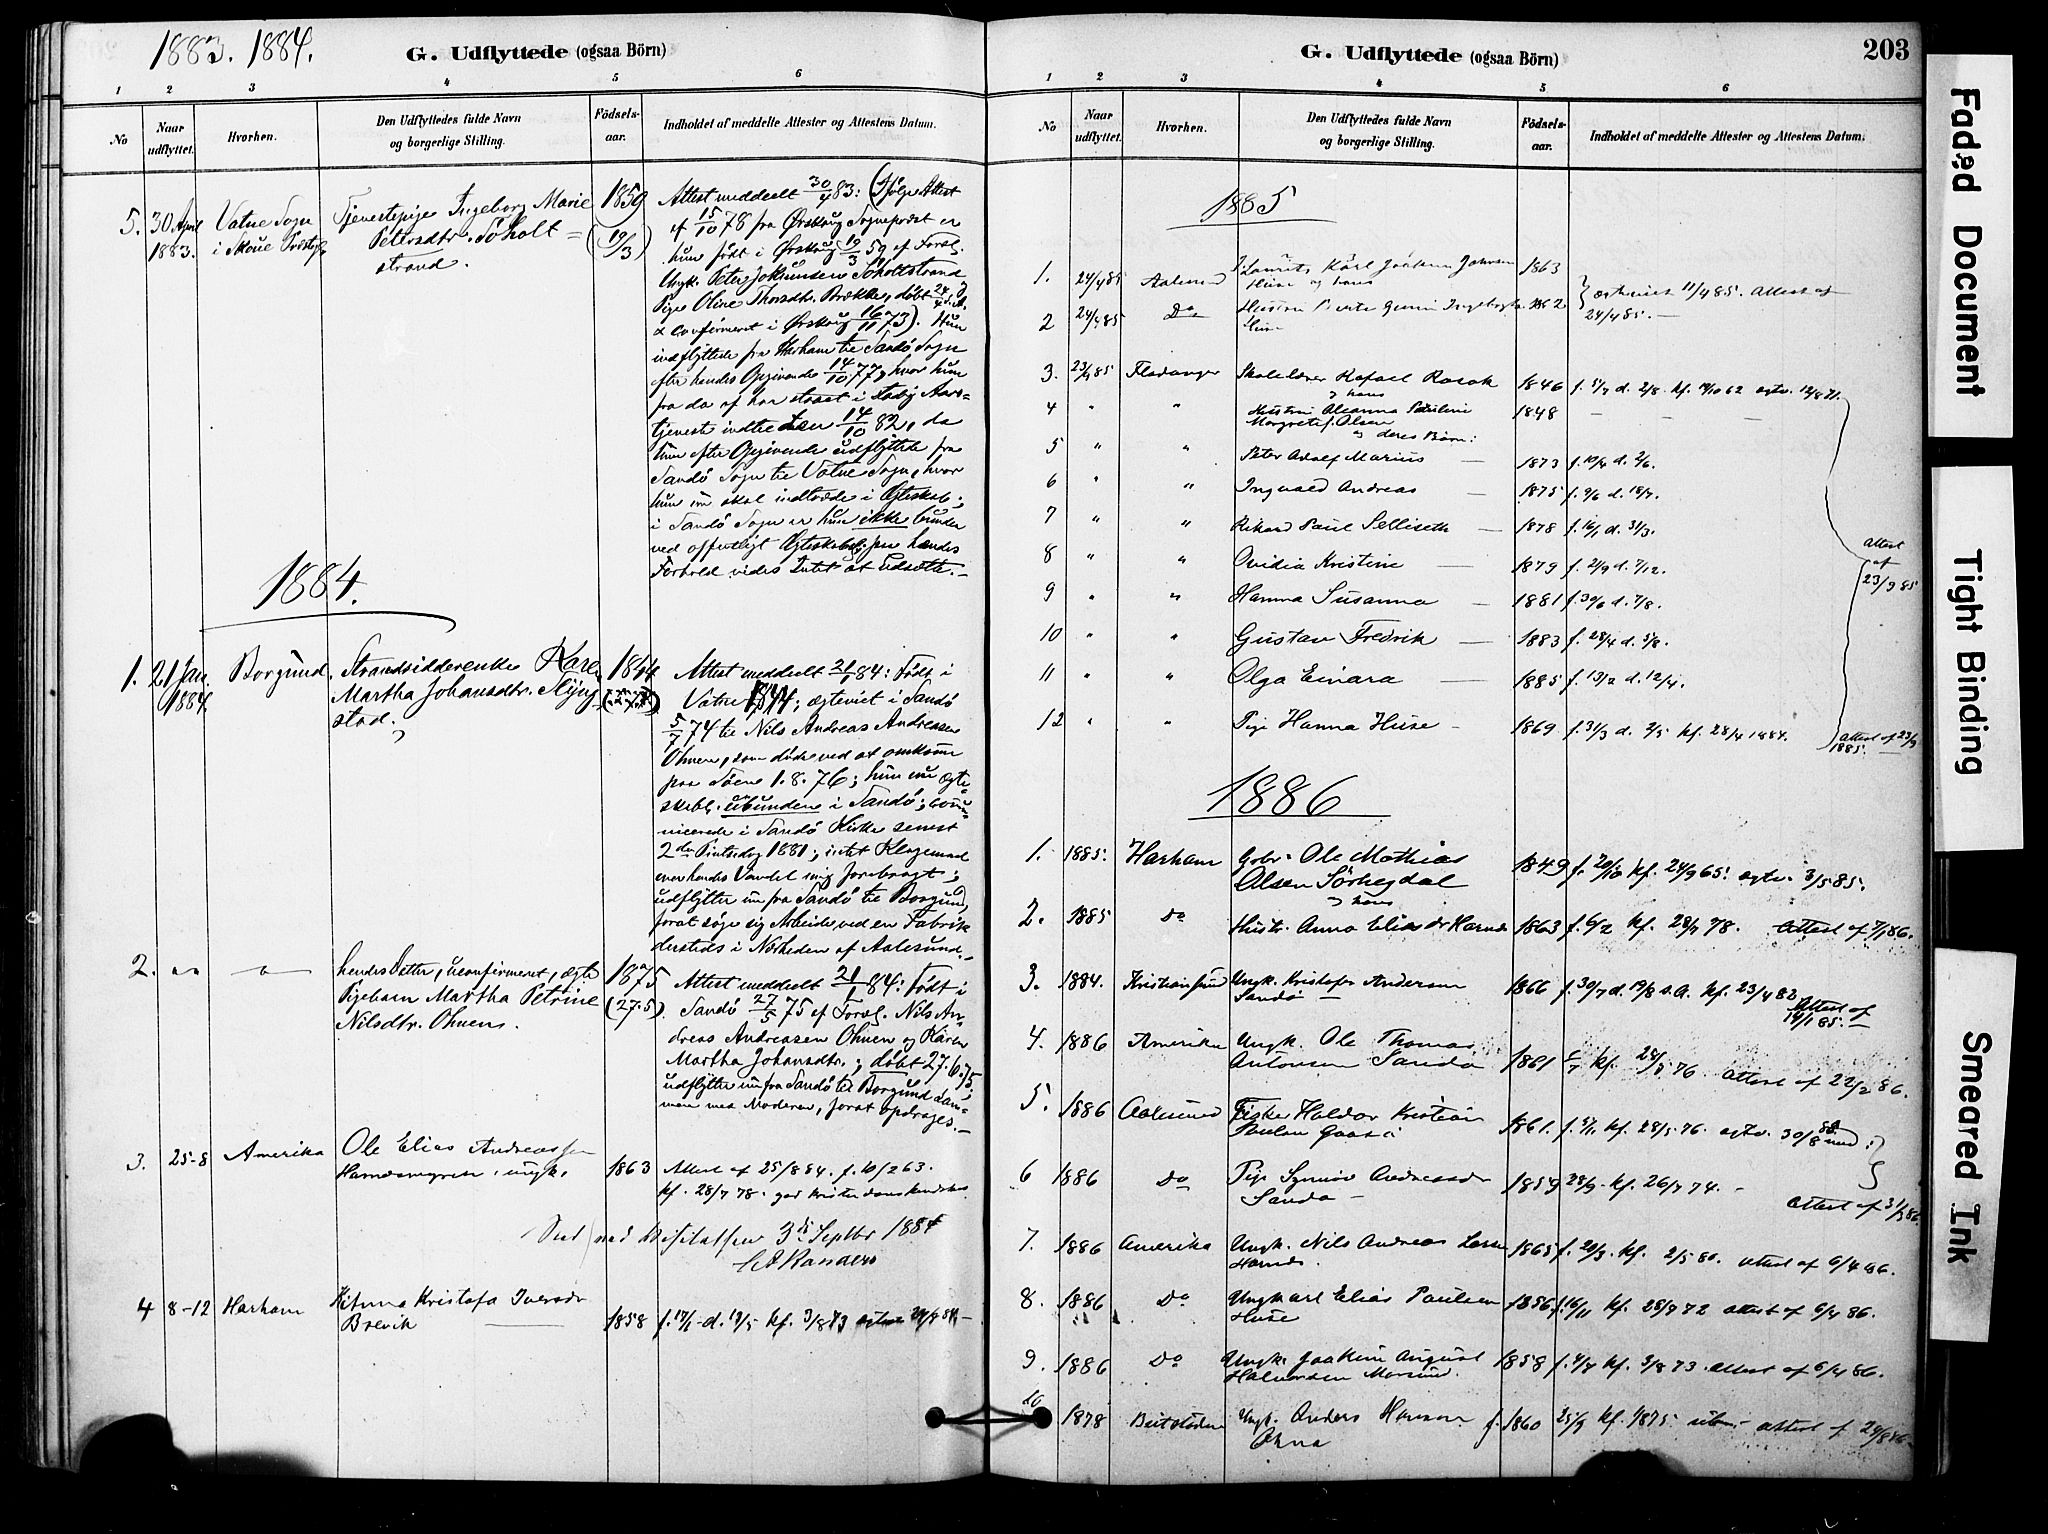 1883. 1884.
G. Udflyttede (ogsaa Börn)
1 2 3 4 5 6
No
Naar udflyttet.
Hvorhen.
Den Udflyttedes fulde Navn
og borgerlige Stilling.
Födsels-
aar.
Indholdet af meddelte Attester og Attestens Datum.
5. 30 April 1883. Vatne Sogn
Tjenestepige Ingeborg Marie
Petersdtr. Söholt=
strand.
1859
(19/3)
Attest meddelt 30/4 83: (Ifølge Attest
af 15/10 78 fra Ørskoug Sognepræst er
hun født i Ørskoug 19/3 59 af Foræl.
Ungk. Peter Jokumsen Söholtstrand og
Pige Oline Thorsdtr. Brække, døbt 24/4
& confirmeret i Ørskoug 16/11 73). Hun
indflyttede fra Harham til Sandö Sogn
efter hendes Opgivende 14/10 77, hvor hun
fra da af har staaet i Aars-
tjeneste indtil den 14/10 82, da
hun efter Opgivende udflyttede fra
Sandö Sogn til Vatne Sogn, hvor
hun nu skal indtræde i Ægteskab;
i Sandö Sogn er hun ikke bunden
ved offentligt Ægteskab; paa hendes
Forhold vides Intet at udsætte.-
1884.
1. 21 Jan. 1884. Borgund.
Strandsidderenke Karen
Martha Johansdtr. Slyng-
stad.
1844
Attest meddelt 21/1 84: Født i
Vatne 1844; ægteviet i Sandö
5/7 74 til Nils Andreas Andreasen
Ohnen, som døde ved at omkomme
paa Söen 1.8.76; hun nu ægte-
skabl. ubunden i Sandö; commu-
nicerede i Sandö Kirke senest
2den Pintsedag 1881; intet Klagemaal
over hendes Vandel mig forebragt;
udflytter nu fra Sandö til Borgund,
forat søge sig Arbeide ved en Fabrik
dersteds i Nærheden af Aalesund.-
2. " "
hendes Datter, uconfirmeret, ægte
Pigebarn Martha Petrine
Nilsdtr. Ohnen.
1875
(27.5)
Attest meddelt 21/1 84: Født i
Sandö 27/5 75 af Foræl. Nils An-
dreas Andreasen Ohnen og Karen
Martha Johansdtr.; døbt 27.6.75;
udflytter nu fra Sandö til Borgund sam-
men med Moderen, forat opdrages.-
3. 25-8 Amerika
Ole Elias Andreassen
ungk.
1863
Attest af 25/8 84. f. 10/2 63.
kf. 28/7 78. god Kristendomskundskab
Seet ved Visitatsen 3die Septbr 1884
4 8-12 Harham
Kristofa Iversdr
Brevik
1858
203
G. Udflyttede (ogsaa Börn)
1 2 3 4 5 6
No
Naar
udflyttet.
Hvorhen.
Den Udflyttedes fulde Navn
og borgerlige Stilling.
Födsels-
aar.
Indholdet af meddelte Attester og Attestens Datum.
1885
1. 24/4 85 Aalesund Karl Joakim Jansen 1863
Huse og hans
2 24/4 85 Do Hustru 1862
Huse
ægteviet 11/4 85. Attest af
24/4 85. -
3. 23/9 85 Skolelærer Rafael 1846 f. 5/7 d. 2/8. kf. 19/10 62 ægtv. 12/8 71.
og hans
4 " " Hustru Pauline 1848 - - -
Olsen
og deres Børn:
5 " " Peter Adolf Marius - 1873 f. 10/4 d. 2/6.
6 " " Ingvald Andreas - 1875 f. 9/6 d. 18/7.
7 " " Rikard PaulSelliseth - 1878 f. 16/1 d. 31/3.
8 " " Ovidia Kristine - 1879 f. 2/9 d. 7/12.
9 " " Hanna Susanna - 1881 f. 30/6 d. 7/8.
10 " " Gustav Fredrik - 1883 f. 28/4 d. 5/8.
11 " " Olga Einara - 1885 f. 13/2 d. 12/4.
attest
af
23/9 85
12 " " Pige Hanna Huse - 1869 f. 31/3 d. 2/5 kf. 28/4 1884.
attest af 23/9
1885.
1886
1. 1885. Harham Gbr. Ole Mathias
Olsen Sörhegdal
og hans
1849 f. 20/10 kf. 24/9 65. ægtv. 3/5 85.
2. 1885 Do Hustr. Anna Eliasdr Harnes 1863 f. 6/2 kf. 28/7 78. Attest af 7/1 86.
3. 1884. Kristiansund Ungk. Kristofer Andersen
Sandö -
1866 f. 30/7 d. 19/8 s.A. kf. 23/4 82
Attest af
14/1 85.-
4. 1886 Amerika Ungk. Ole Thomas
Antonsen Sandö
1861 kf. 28/5 76. attest af 22/2 86.
5. 1886 Aalesund Fisker Haldor Kristian
Paulsen
1861. kf. 28/5 76. ægtv. 30/8 85 med
6 1886 Do Pige Synnöv Andreasdr
Sandö -
1859 28/9 - kf. 26/7 74. -
attest af 31/3 86
7. 1886 Amerika Ungk. Nils Andreas
Harnes.
1865 f. 20/3. kf. 2/5 80. attest af 6/4 86.
8. 1886 Do Ungkarl Elias Paulsen
Huse
1856 f. 16/11 kf. 28/7 72 attest af 6/4 86.
9. 1886 Do Ungk. Joakim August
Halvorsen
1858 f. 4/7 kf. 3/8 73. attest af 6/4 86.
10 1878 Ungk. Anders Hansen f.
1860 25/9 kf. 1875. attest af 29/8 86.
Faded Document
Tight Binding
Smeared Ink